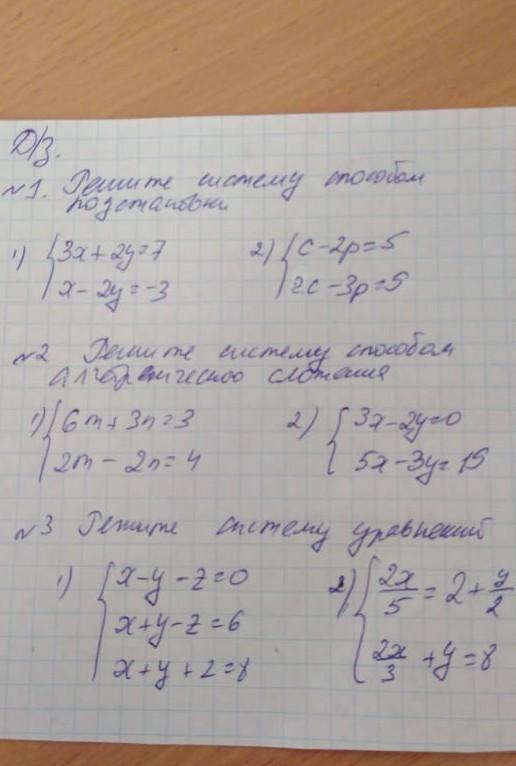 Д/З.
№1. Решите систему способом
подстановки
1) { 3x + 2y = 7
x - 2y = -3
2) { c - 2p = 5
7c - 3p = 5
№2 Решите систему способом
алгебраического сложения
1) { 6m + 3n = 3
2m - 2n = 4
2) { 3x - 2y = 0
5x - 3y = 19
№3 Решите систему уравнений
1) { x - y - z = 0
x + y - z = 6
x + y + z = 8
2) { 2x/5 = 2 + y/2
2x/3 + y = 8